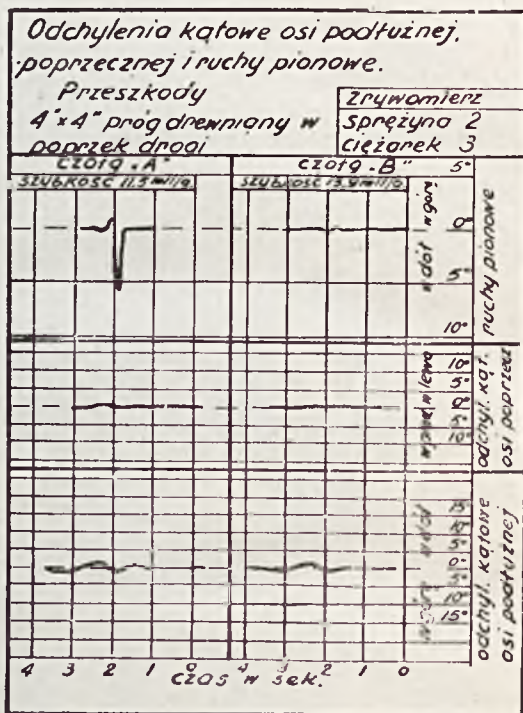 Odchylenia kątowe osi podłużnej,
poprzecznej i ruchy pionowe.
Przeszkody
4"x4" próg drewniany w
poprzek drogi
Zrywomierz
Sprężyna 2
Ciężarek 3
Czołg „A"
Czołg „B"
szybkość 11.5 mil/g.
szybkość 13.9 mil/g
5°
0°
5°
10°
w dół w górę
ruchy pionowe
10°
5°
0°
5°
10°
w prawo w lewo
odchyl. kąt.
osi poprzecz
15°
10°
5°
0°
5°
10°
15°
w górę w dół
odchyl. kątowe
osi podłużnej
4 3 2 1 0 4 3 2 1 0
czas w sek.